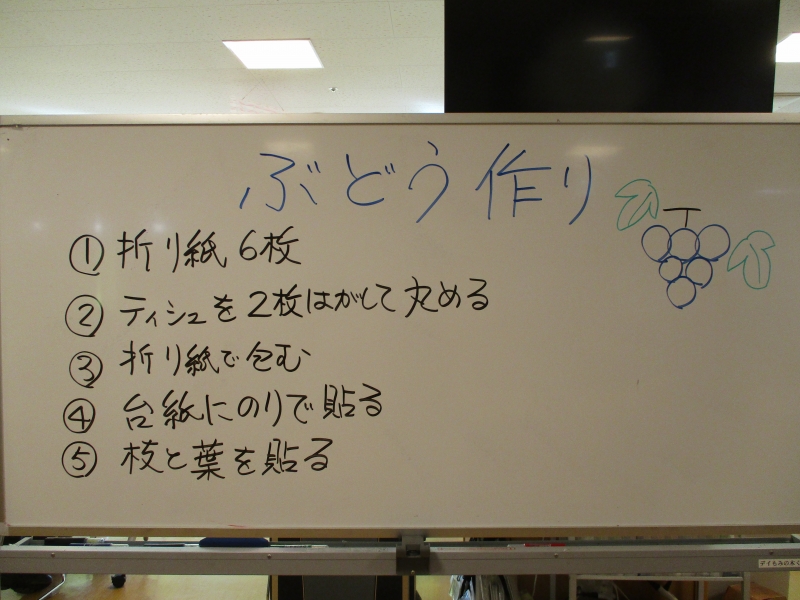 ぶどう作り
① 折り紙 6枚
② ティシュを2枚はがして丸める
③ 折り紙で包む
④ 台紙にのりで貼る
⑤ 枝と葉を貼る